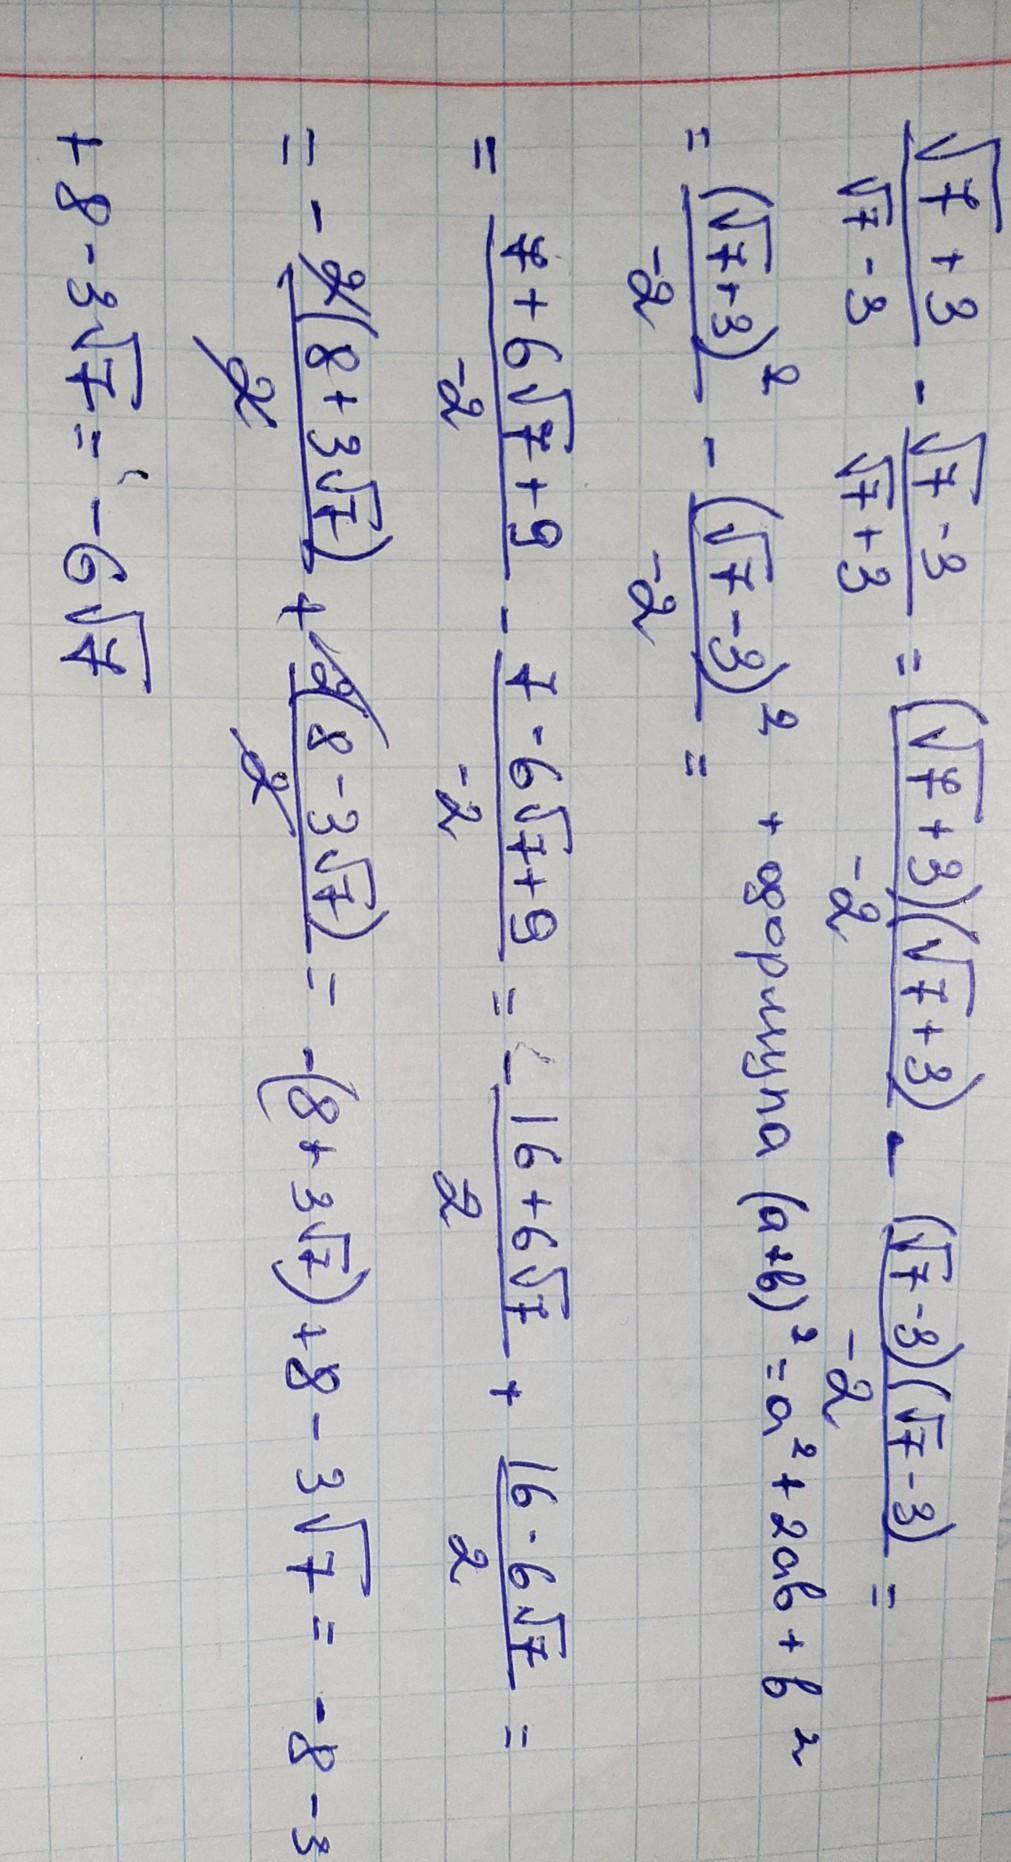 (√7+3)/(√7-3) - (√7-3)/(√7+3) = ((√7+3)(√7+3))/(-2) - ((√7-3)(√7-3))/(-2) =
= (√7+3)²/(-2) - (√7-3)²/(-2) = + формула (a+b)²=a²+2ab+b²
= (7+6√7+9)/(-2) - (7-6√7+9)/(-2) = -(16+6√7)/2 + (16-6√7)/2 =
= -2(8+3√7)/2 + 2(8-3√7)/2 = -(8+3√7)+8-3√7 = -8-3
+8-3√7 = -6√7